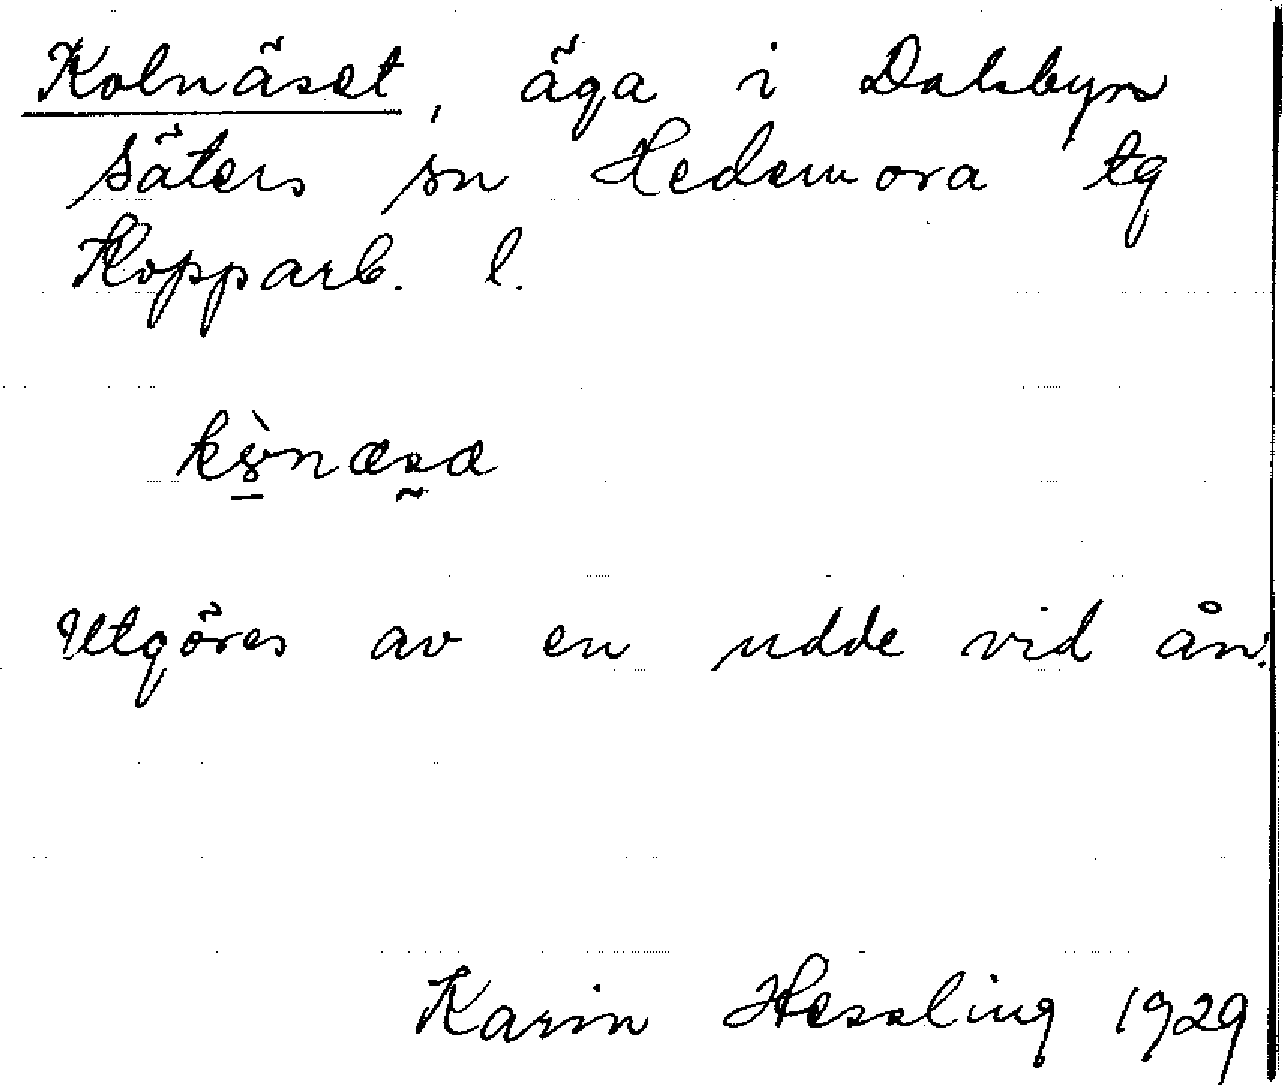 Kolnäset, äga i Dalsbyn
Säters sn Hedemora tg
Kopparb. l.
Utgöres av en udde vid ån.
Karin Hessling 1929